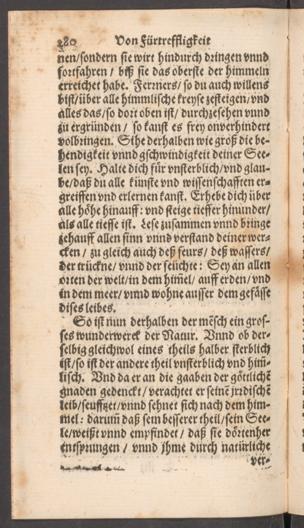 280 Von Fürtreffligkeit
nen/sondern sie wirt hindurch dringen vnnd
fortfahren / biß sie das oberste der himmeln
erreichet habe. Fermers/ so du auch willens
bist/über alle himmlische kreyse zesteigen/vnd
alles das/so dort oben ist/ durchzesehen vnnd
zů ergründen / so kanst es frey onverhindert
volbringen. Sihe derhalben wie groß die be-
hendigkeit vnnd gschwindigkeit deiner See-
len sey. Halte dich für vnsterblich/vnd glau-
be/daß du alle künste vnd wissenschafften er-
greiffen vnd erlernen kanst. Erhebe dich über
alle höhe hinauff: vnd steige tieffer hinunder/
als alle tieffe ist. Lese zusammen vnnd bringe
zehauff allen sinn vnnd verstand deiner wer-
cken / zů gleich auch deß feurs/ deß wassers/
der trückne/vnnd der feüchte: Sey an allen
orten der welt/in dem him̃el/ auff erden/ vnd
in dem meer/ vnnd wohne ausser dem gefässe
dises leibes.
So ist nun derhalben der mẽsch ein gros-
ses wunderwerck der Natur. Vnnd ob der-
selbig gleichwol eines theils halber sterblich
ist/so ist der andere theil vnsterblich vnd him̃-
lisch. Vnd da er an die gaaben der göttlichẽ
gnaden gedenckt/ verachtet er seinẽ jrdischẽ
leib/seuffzet/vnnd sehnet sich nach dem him-
mel: darum̃ daß sein besserer theil/sein See-
le/weißt vnnd empfindet / daß sie dörtenher
entsprungen / vnnd jhme durch natürliche
ver-